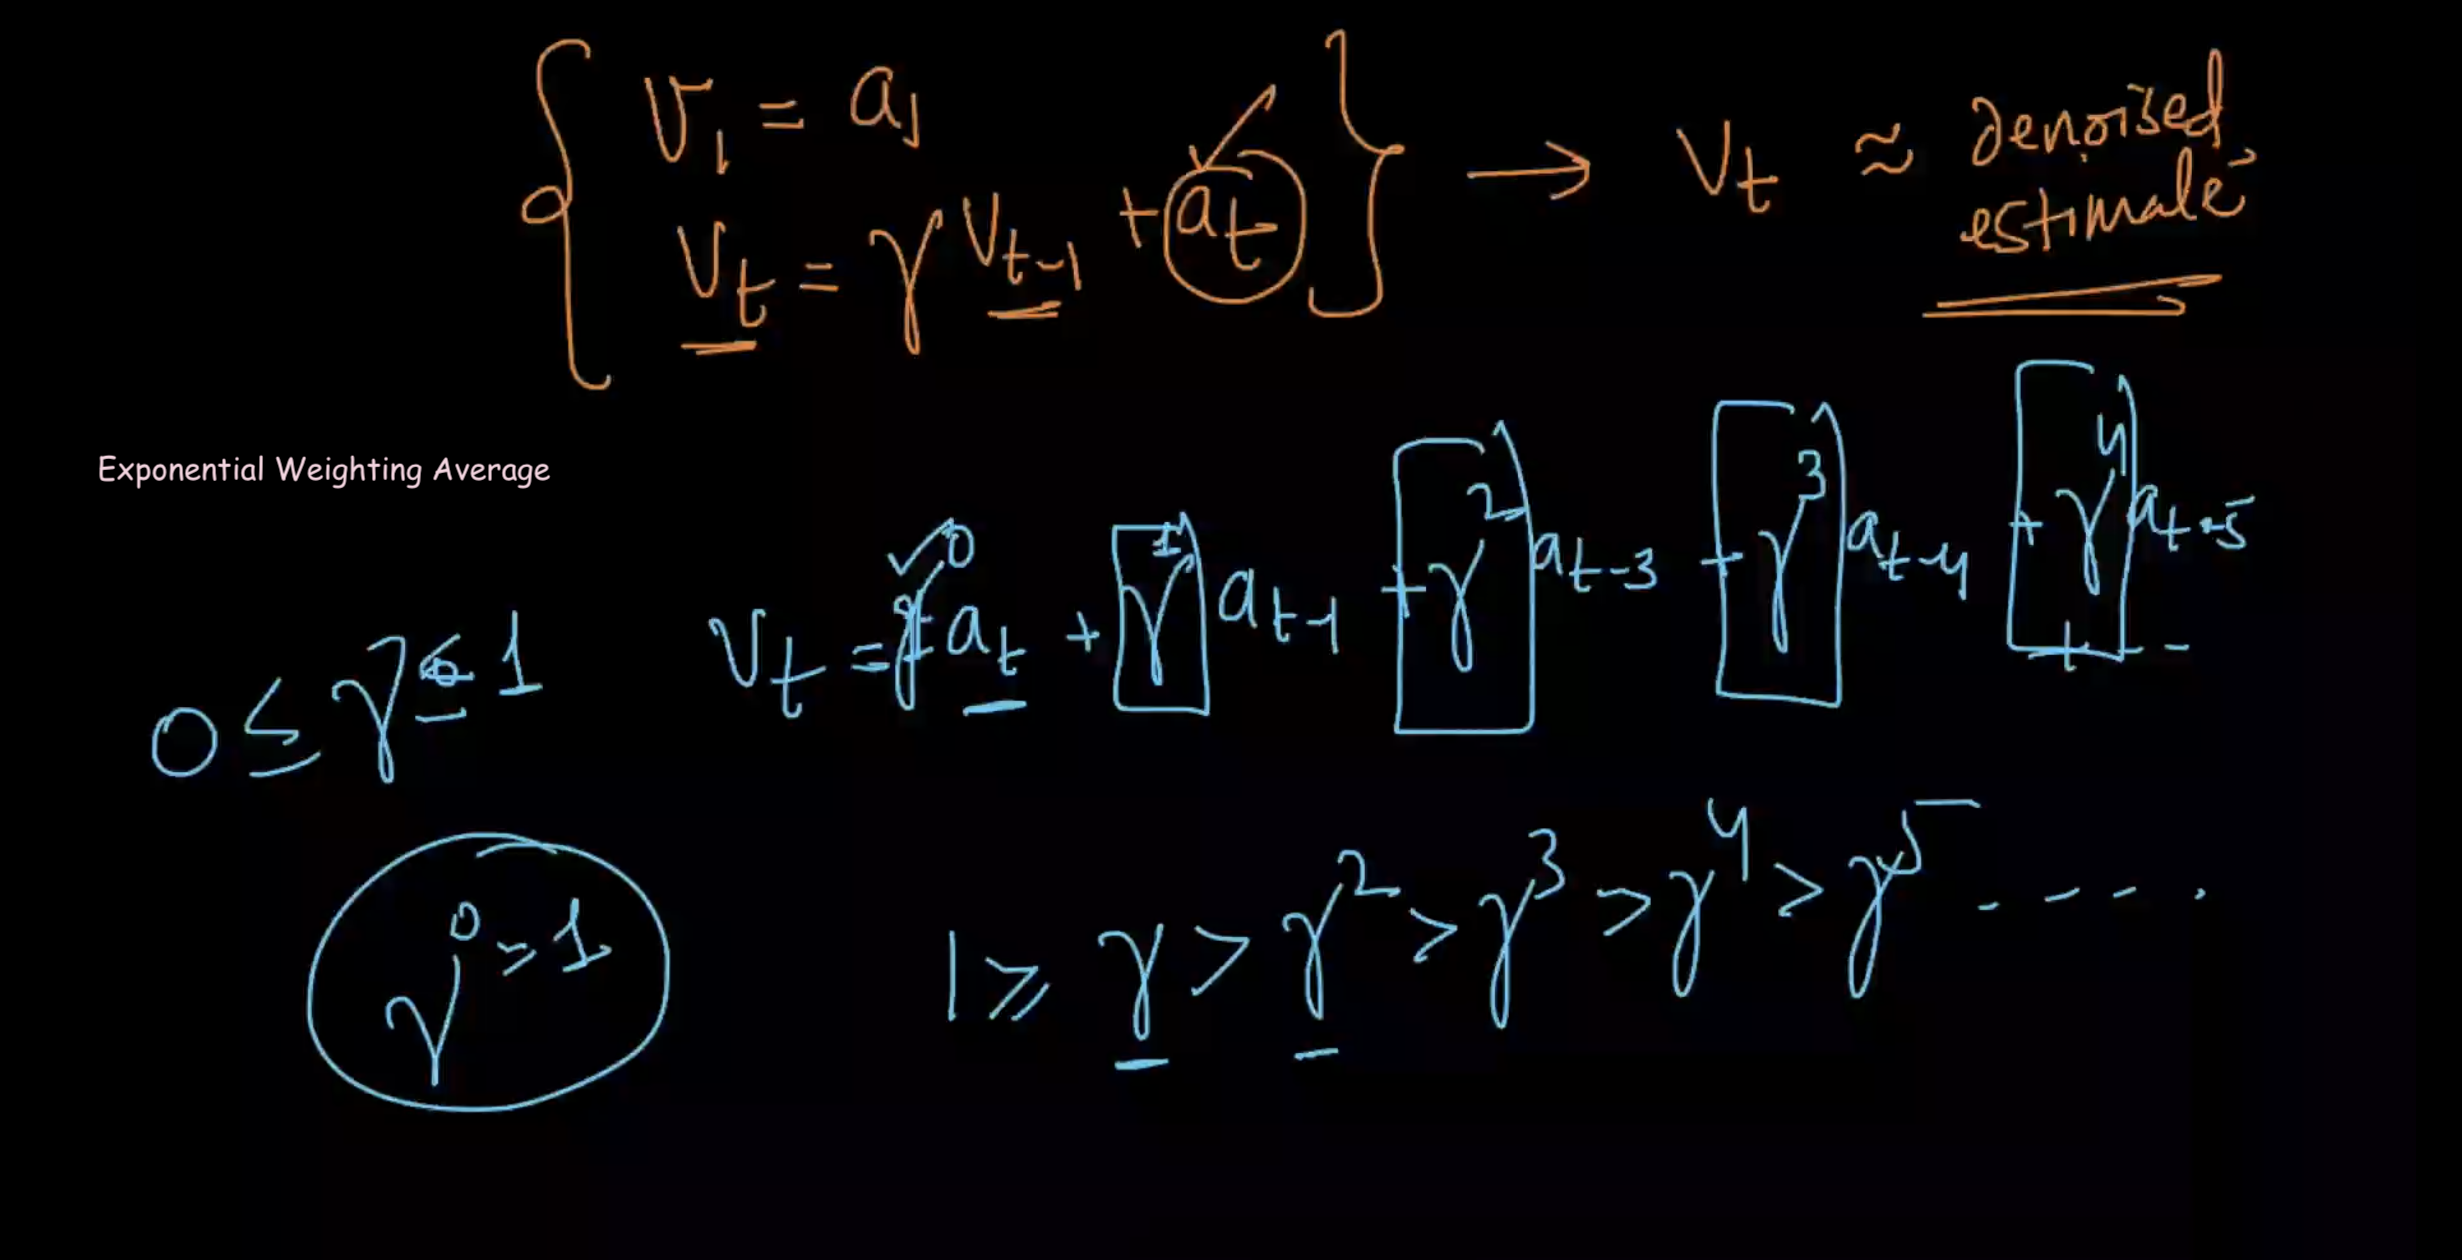 v₁ = a₁
v_t = γ v_{t-1} + a_t → v_t ≈ denoised estimate
Exponential Weighting Average
0 ≤ γ ≤ 1
v_t = γ⁰ a_t + γ¹ a_{t-1} + γ² a_{t-3} + γ³ a_{t-4} + γ⁴ a_{t-5} + - -
γ⁰ = 1
1 ≥ γ > γ² > γ³ > γ⁴ > γ⁵ - - - - .